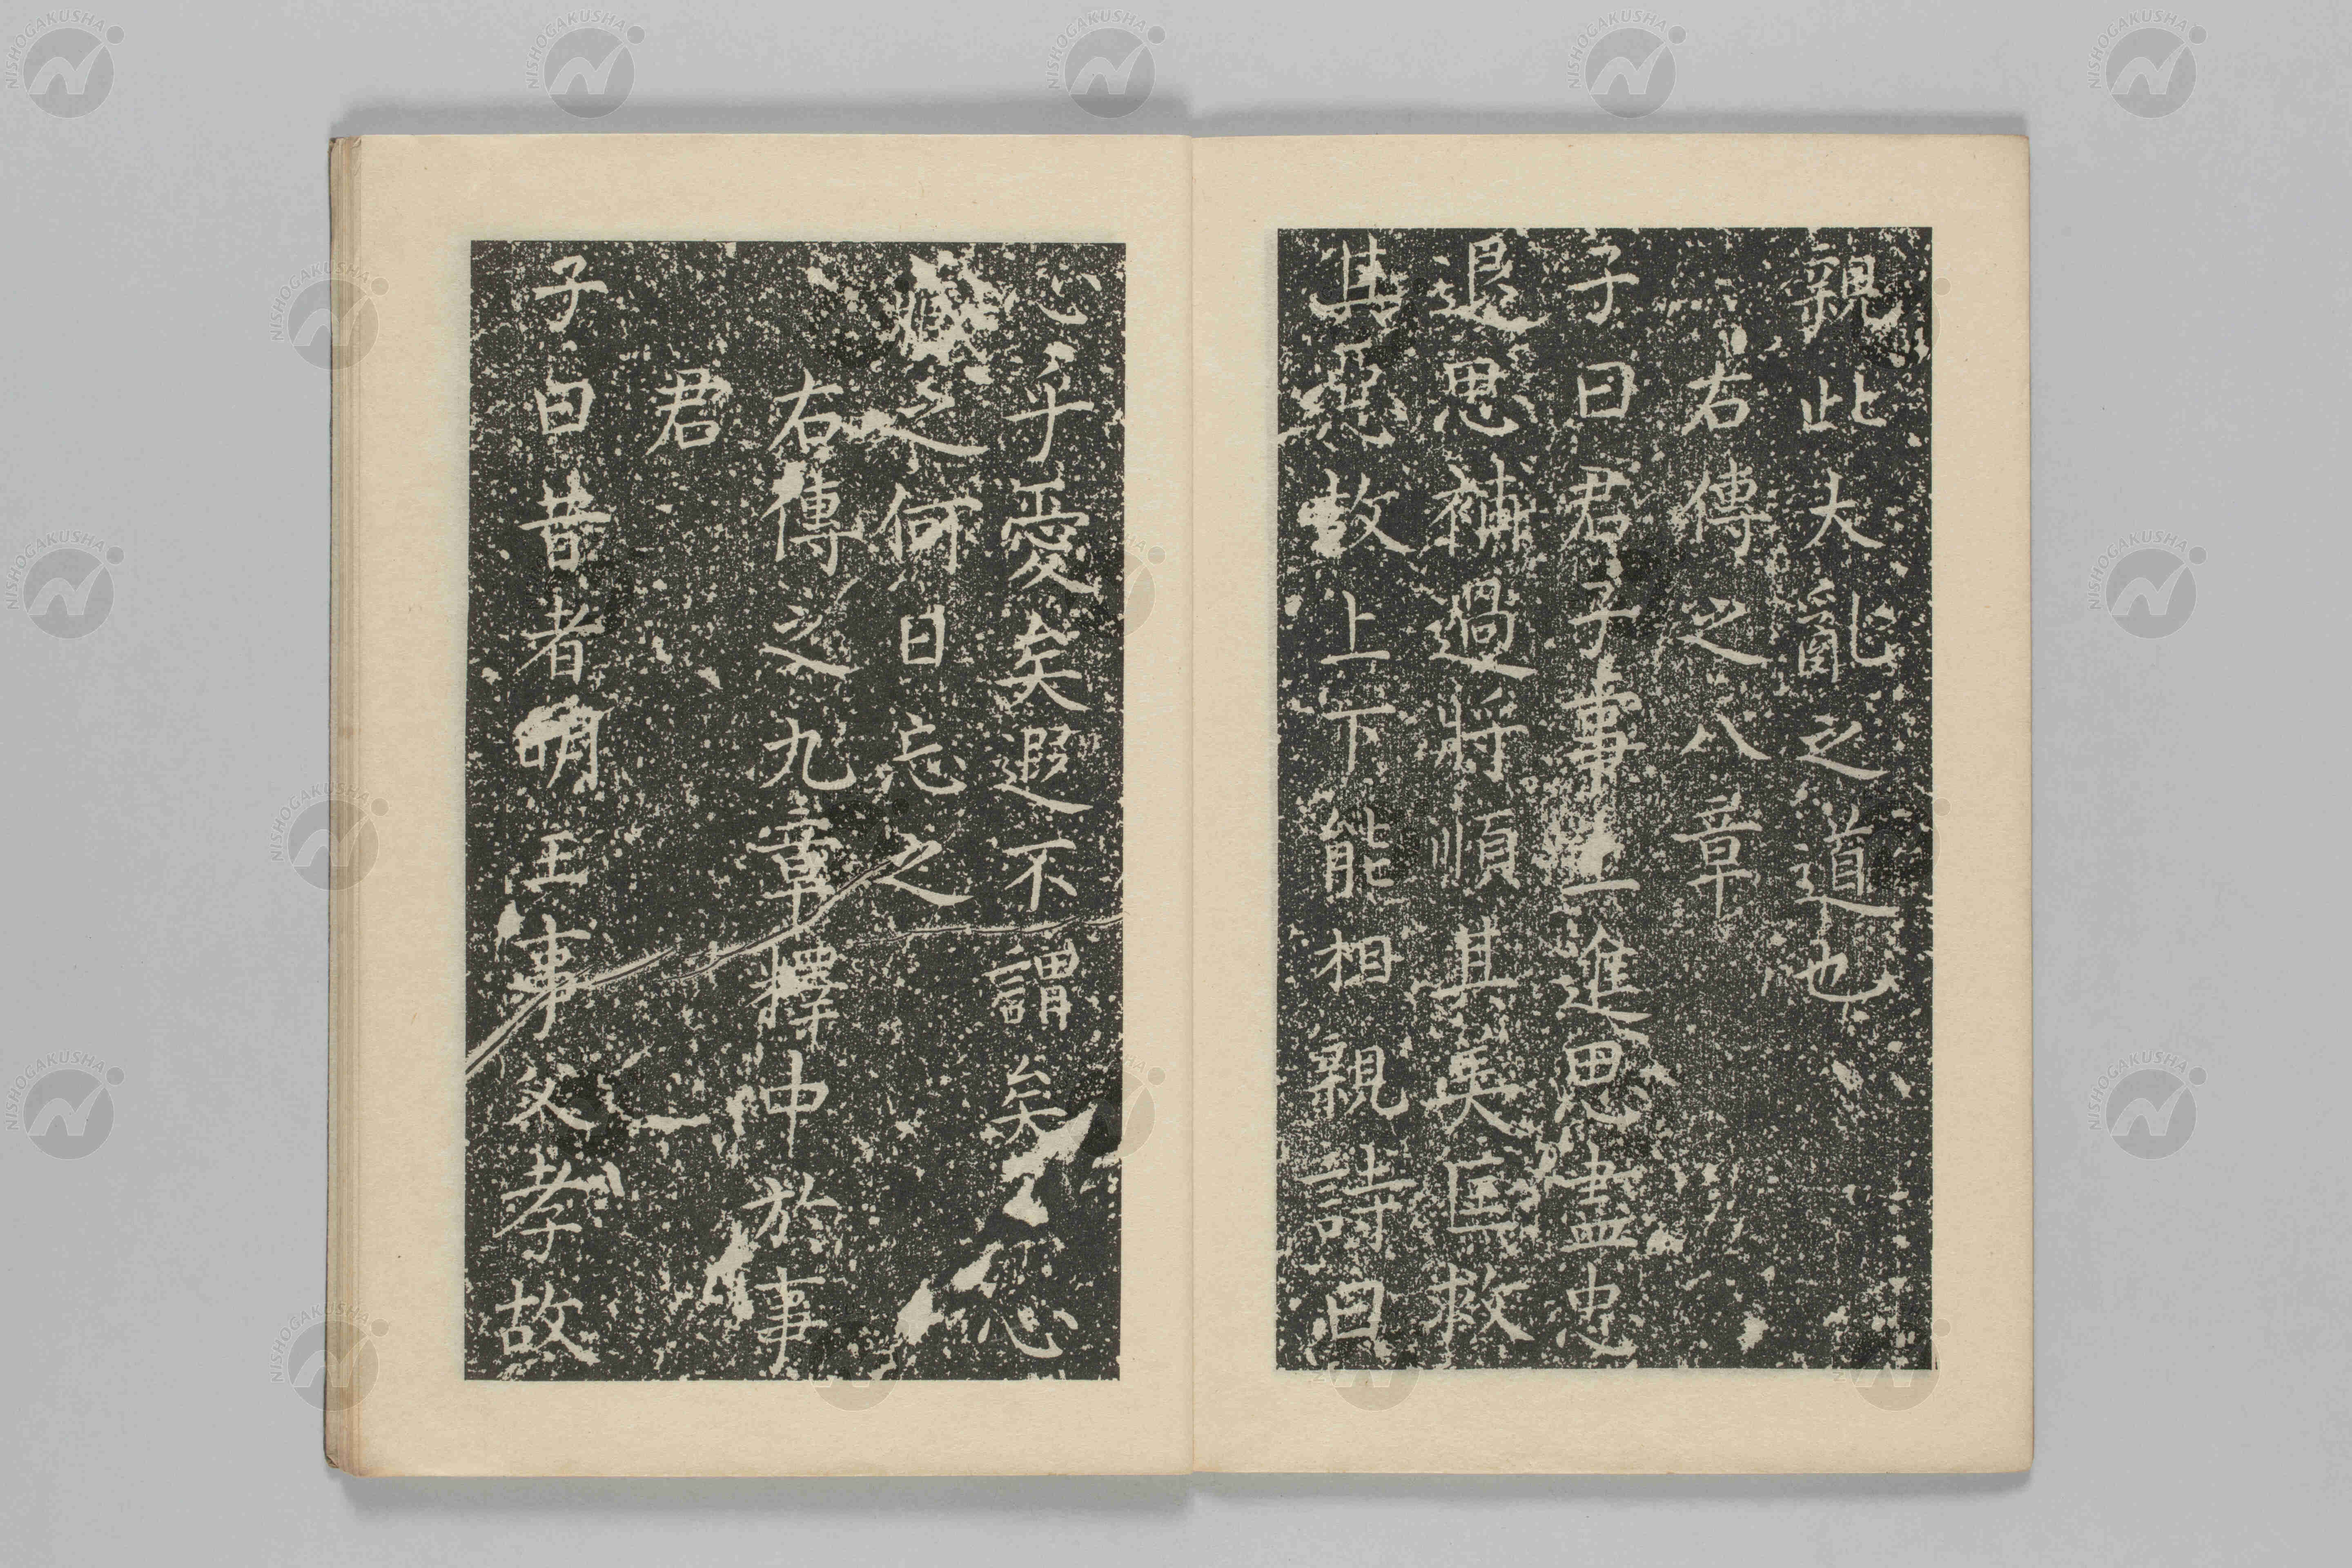 親此大亂之道也
右傳之八章
子曰君子事上進思盡忠
退思補過將順其美匡救
其惡故上下能相親詩曰
心乎愛矣遐不謂矣忠心
藏之何日忘之
右傳之九章釋中於事
君
子曰昔者明王事父孝故
NISHOGAKUSHA